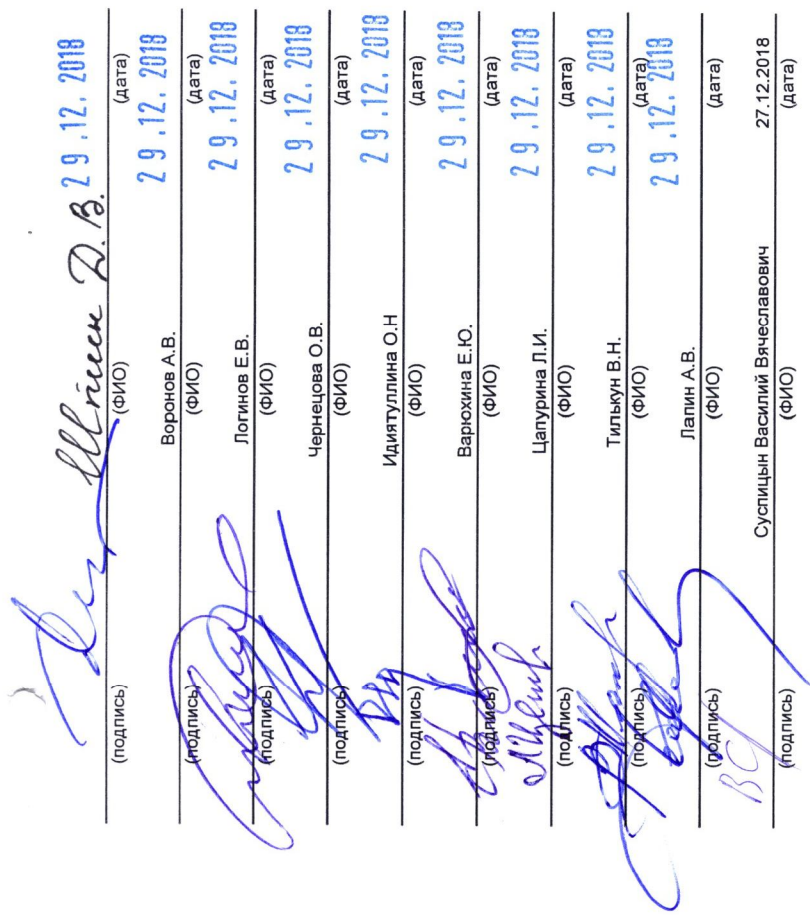 Шпин Д. В. 29.12.2018
(подпись) (ФИО) (дата)
Воронов А.В. 29.12.2018
(подпись) (ФИО) (дата)
Логинов Е.В. 29.12.2018
(подпись) (ФИО) (дата)
Чернецова О.В. 29.12.2018
(подпись) (ФИО) (дата)
Идиятуллина О.Н 29.12.2018
(подпись) (ФИО) (дата)
Варюхина Е.Ю. 29.12.2018
(подпись) (ФИО) (дата)
Цапурина Л.И. 29.12.2018
(подпись) (ФИО) (дата)
Тилькун В.Н. 29.12.2018
(подпись) (ФИО) (дата)
Лапин А.В. 29.12.2018
(подпись) (ФИО) (дата)
Суспицын Василий Вячеславович 27.12.2018
(подпись) (ФИО) (дата)